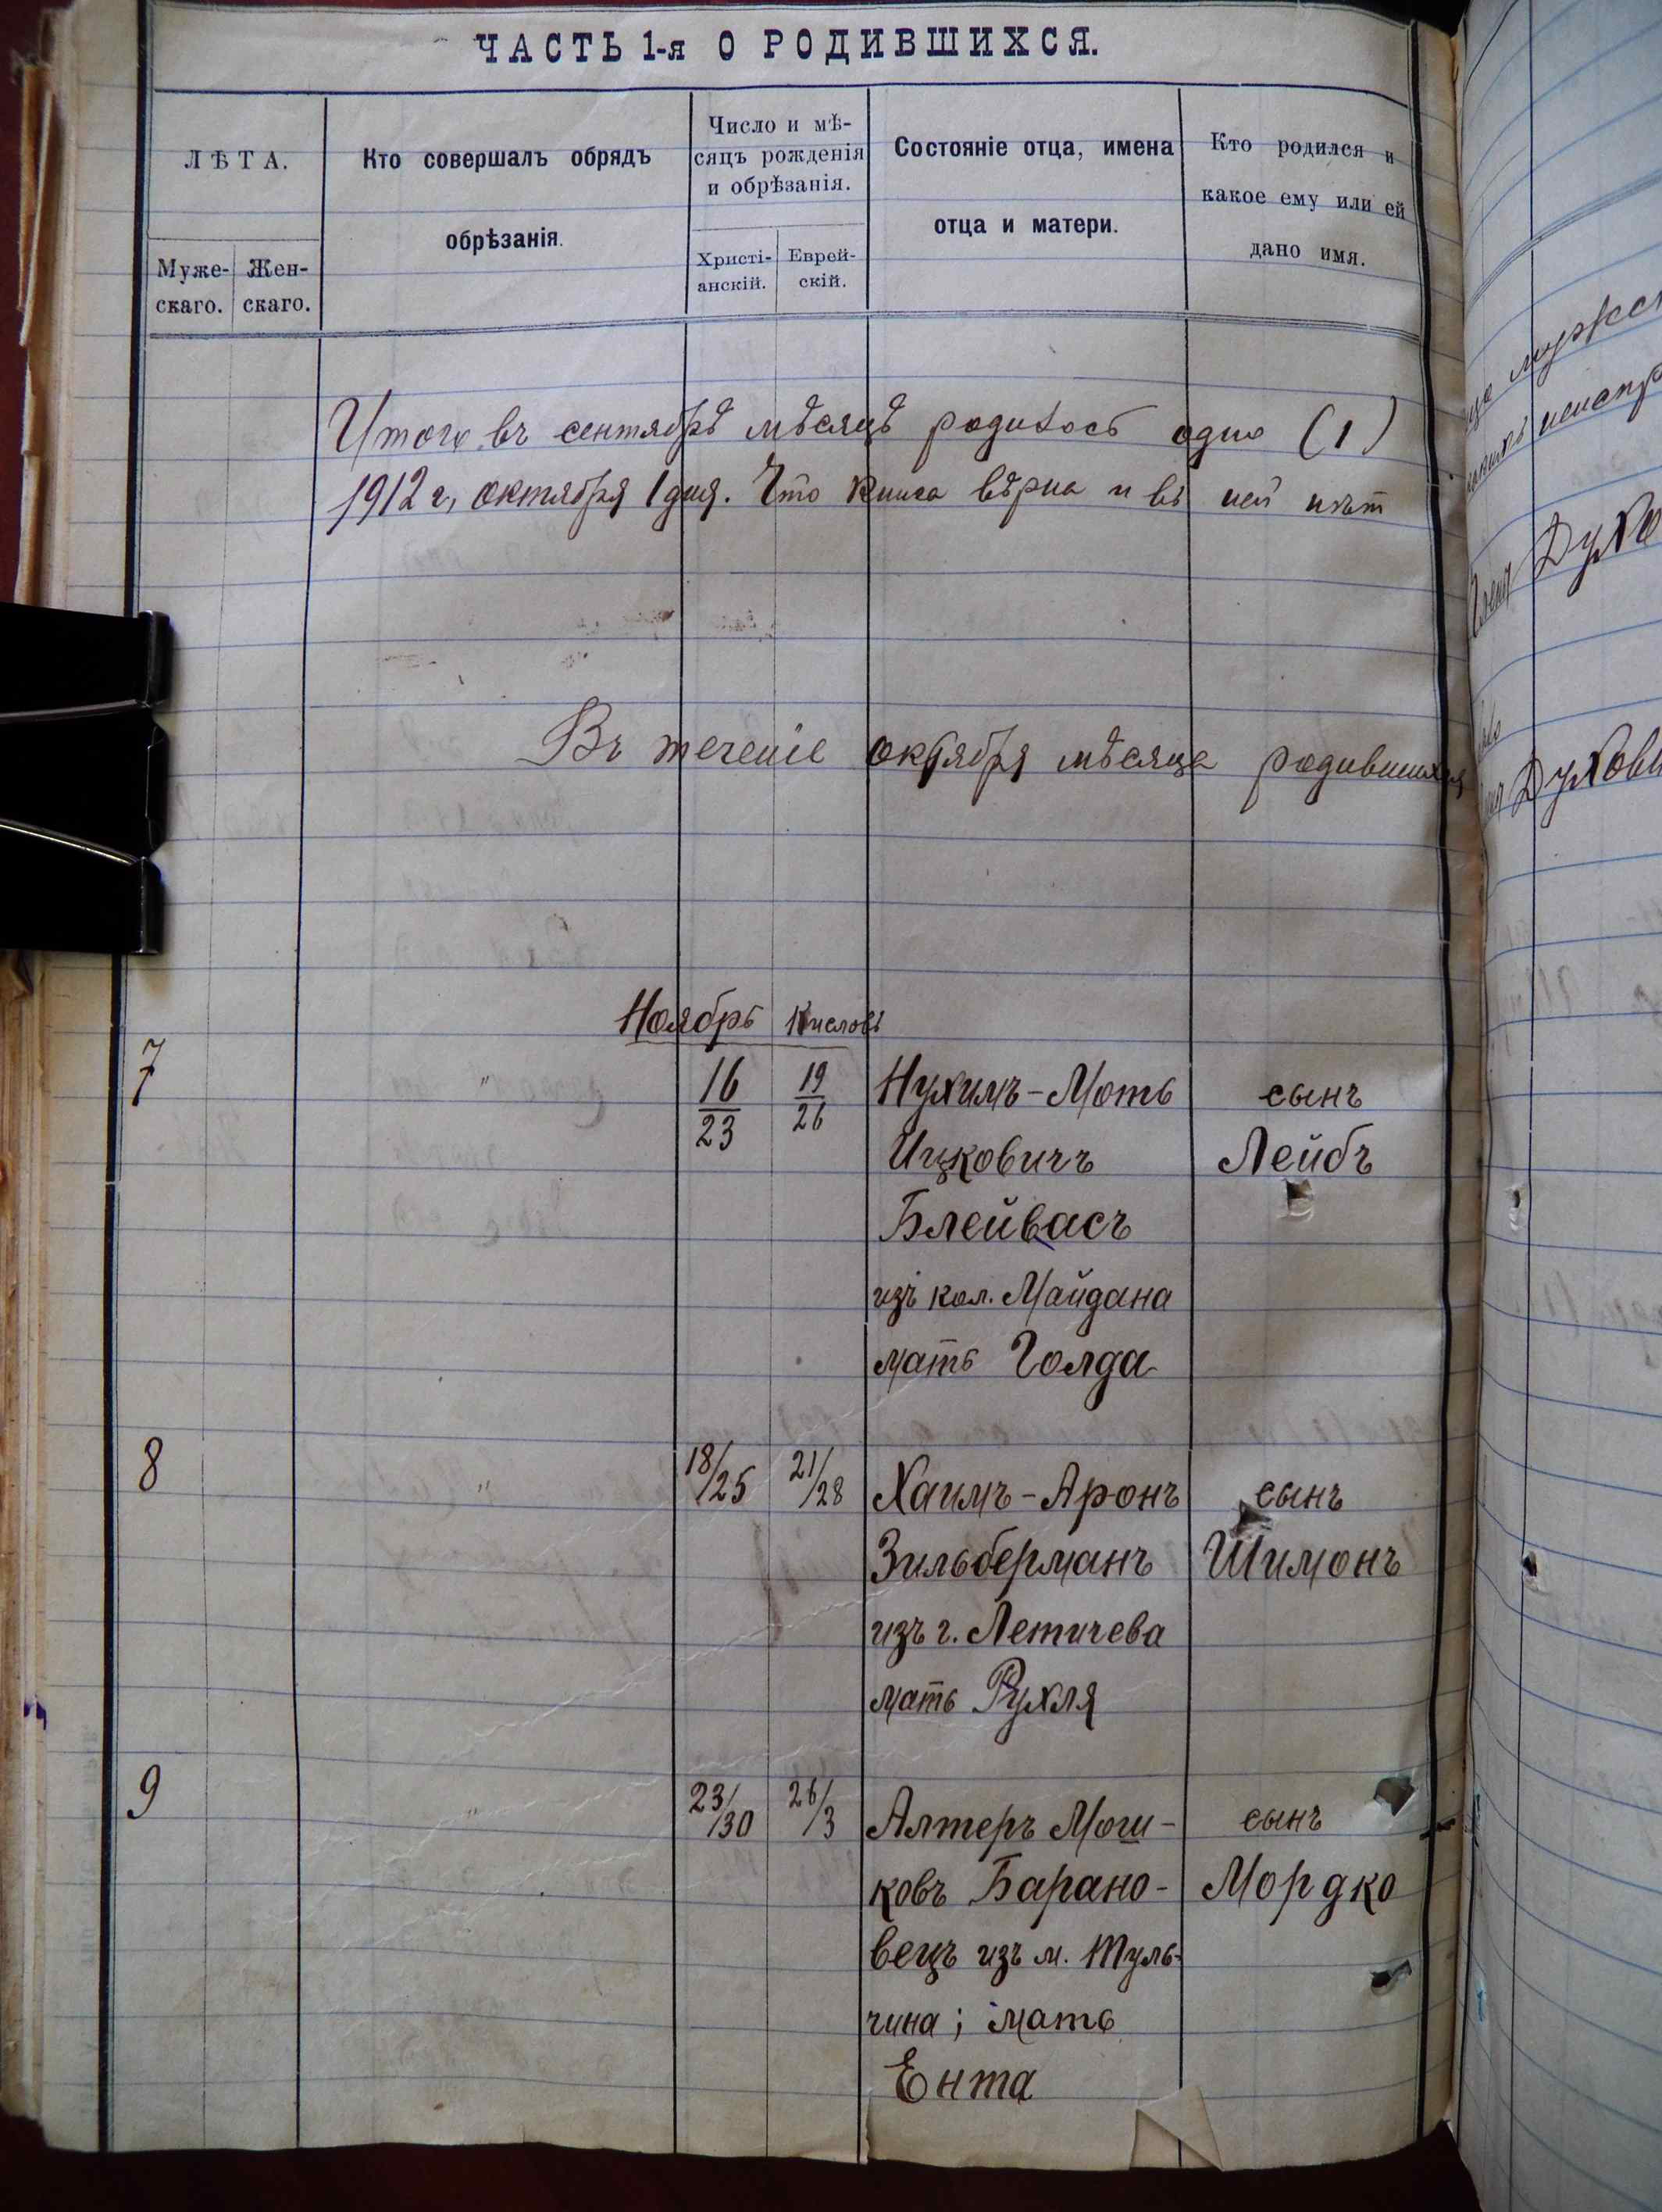 ЧАСТЬ 1-я О РОДИВШИХСЯ.
ЛѢТА.
Муже-
скаго.
Жен-
скаго.
Кто совершалъ обрядъ
обрѣзанія.
Число и мѣ-
сяцъ рожденія
и обрѣзанія.
Христі-
анскій.
Еврей-
скій.
Состояніе отца, имена
отца и матери.
Кто родился и
какое ему или ей
дано имя.
Итого въ сентябрѣ мѣсяцѣ родилось одно (1)
1912 г, октября 1 дня. Что книга вѣрна и въ ней нѣт
Въ теченіе октября мѣсяца родившихся
Ноябрь Кисловъ
7 " 16/23 19/26 Нухимъ-Моть сынъ
Ицковичъ Лейбъ
Блейвасъ
изъ кол. Майдана
мать Голда
8 " 18/25 21/28 Хаимъ-Аронъ сынъ
Зильберманъ Шимонъ
изъ г. Летичева
мать Рухля
9 " 23/30 26/3 Алтеръ Мош- сынъ
ковъ Барано- Мордко
вецъ изъ м. Туль-
чина; мать
Ента